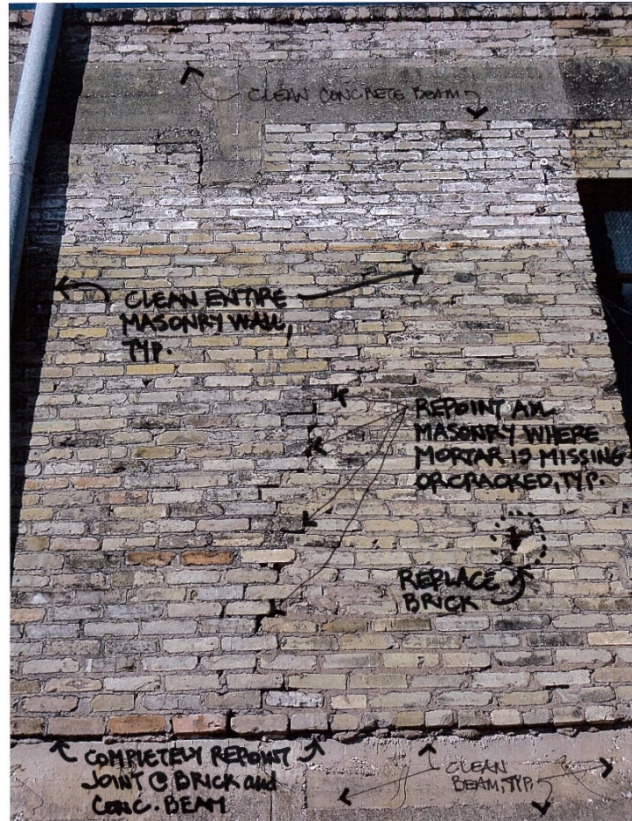 CLEAN CONCRETE BEAM,
CLEAN ENTIRE
MASONRY WALL,
TYP.
REPOINT ALL
MASONRY WHERE
MORTAR IS MISSING
OR CRACKED, TYP.
REPLACE
BRICK
COMPLETELY REPOINT
JOINT @ BRICK and
CONC. BEAM
CLEAN
BEAM, TYP.